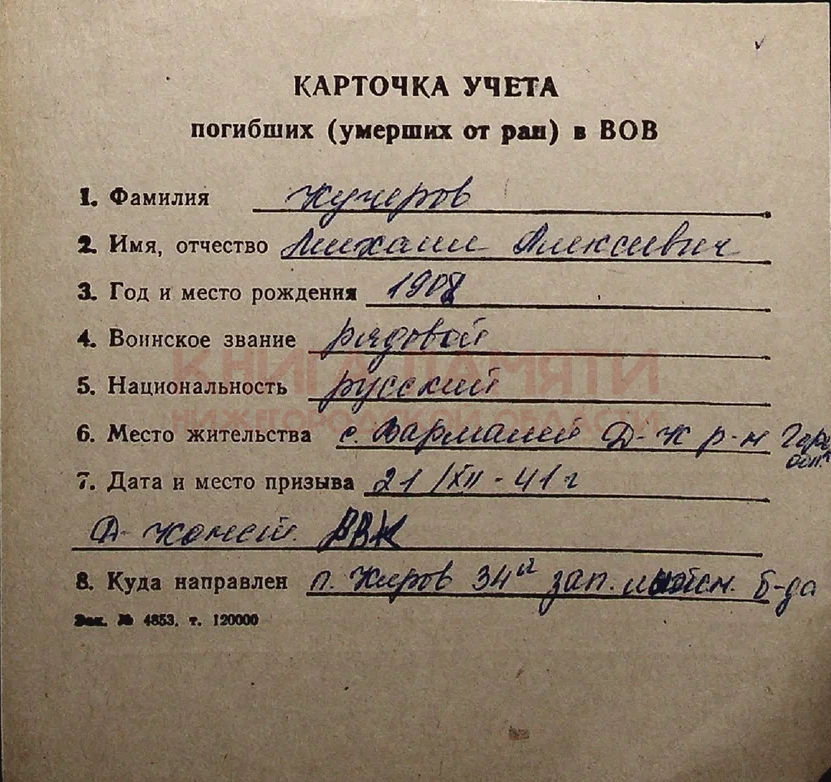 КАРТОЧКА УЧЕТА
погибших (умерших от ран) в ВОВ
1. Фамилия Кучеров
2. Имя, отчество Михаил Алексеевич
3. Год и место рождения 1908
4. Воинское звание рядовой
КНИГА ПАМЯТИ
5. Национальность русский
НИЖЕГОРОДСКОЙ ОБЛАСТИ
6. Место жительства с. Вармалей Д-К р-н Горьк обл.
7. Дата и место призыва 21/XII-41 г
Д-Конст. РВК
8. Куда направлен п. Киров 34ая зап. б-да
Зак. № 4853. т. 120000